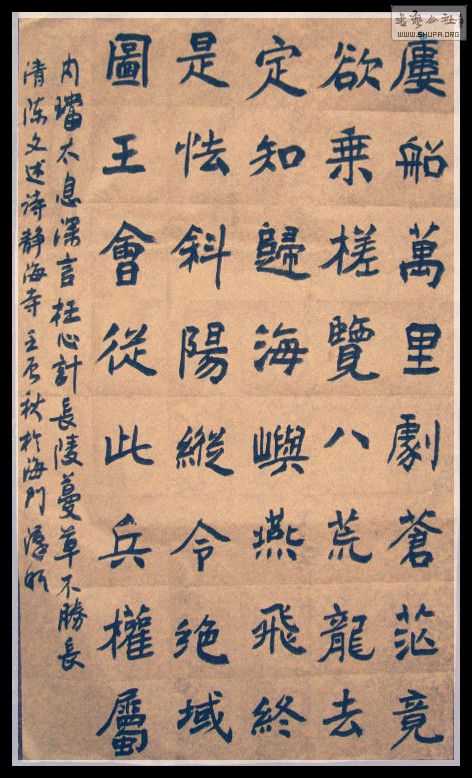 屢船萬里劇蒼茫竟
欲乘槎覽八荒龍去
定知歸海嶼燕飛終
是怯斜陽縱令絶域
圖王會從此兵權屬
内璫太息深言枉心計長陵蔓草不勝長
清陈文述诗静海寺壬辰秋於海门
WWW.SHUFA.ORG